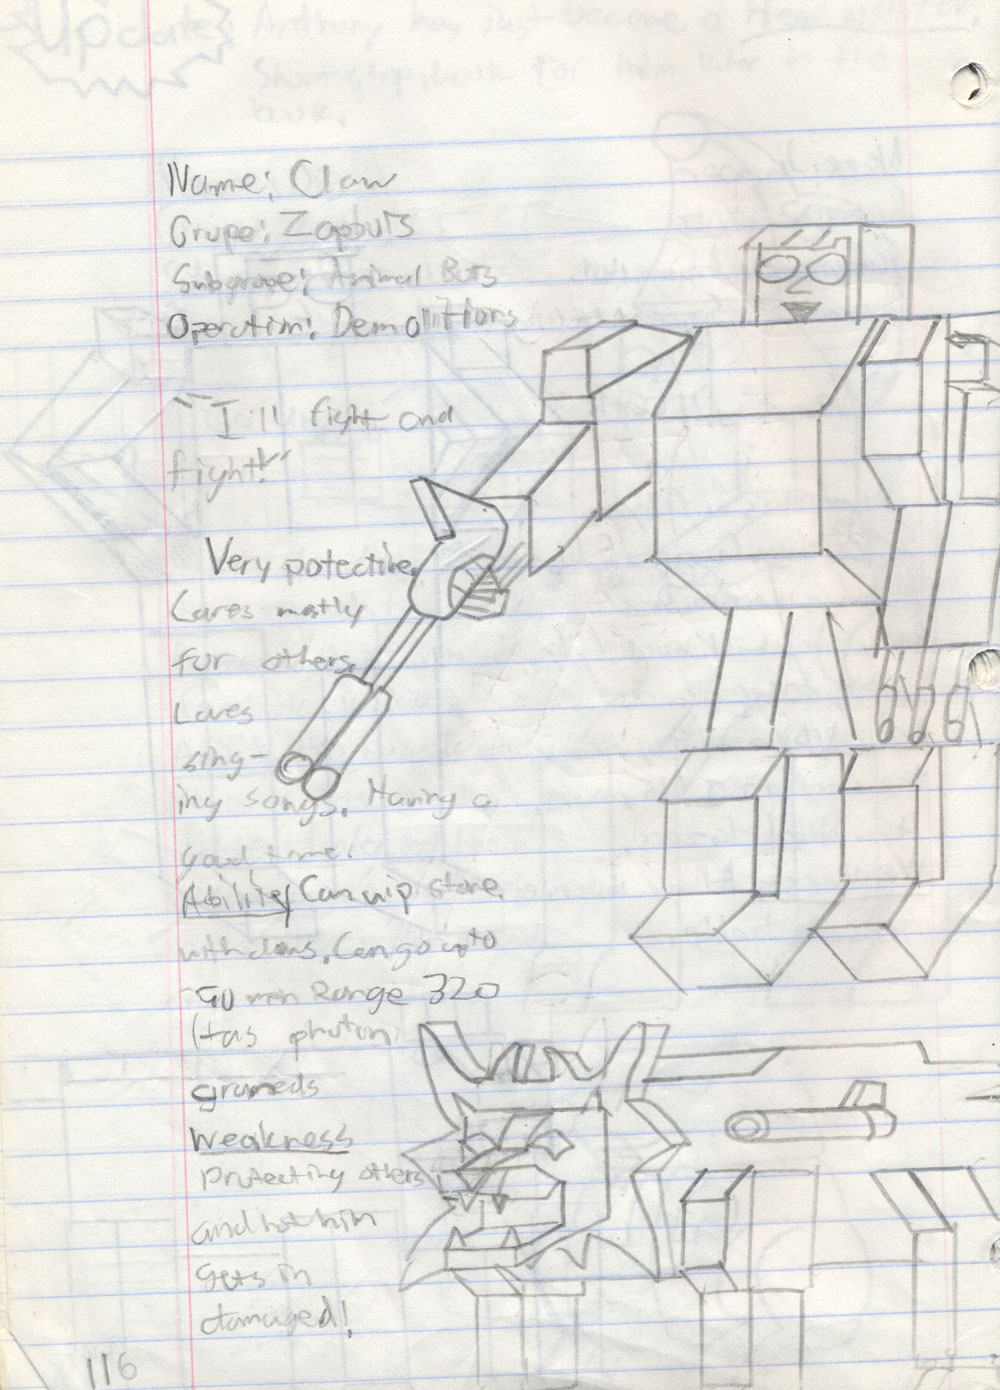 Update
Anthony has just become a Headmaster.
for him later in the
book.
Name: Claw
Grupe: Zapbots
Subgrupe: Animal Bots
Operation: Demolitions
"I'll fight and
fight!"
Very potective.
Cares mostly
for others.
Loves
sing-
ing songs. Having a
good time.
Ability Can nip stone
with claws. Can go up to
90 mph Range 320
Has photon
graneds
Weakness
Protecting others
and not him
gets in
damaged!
116